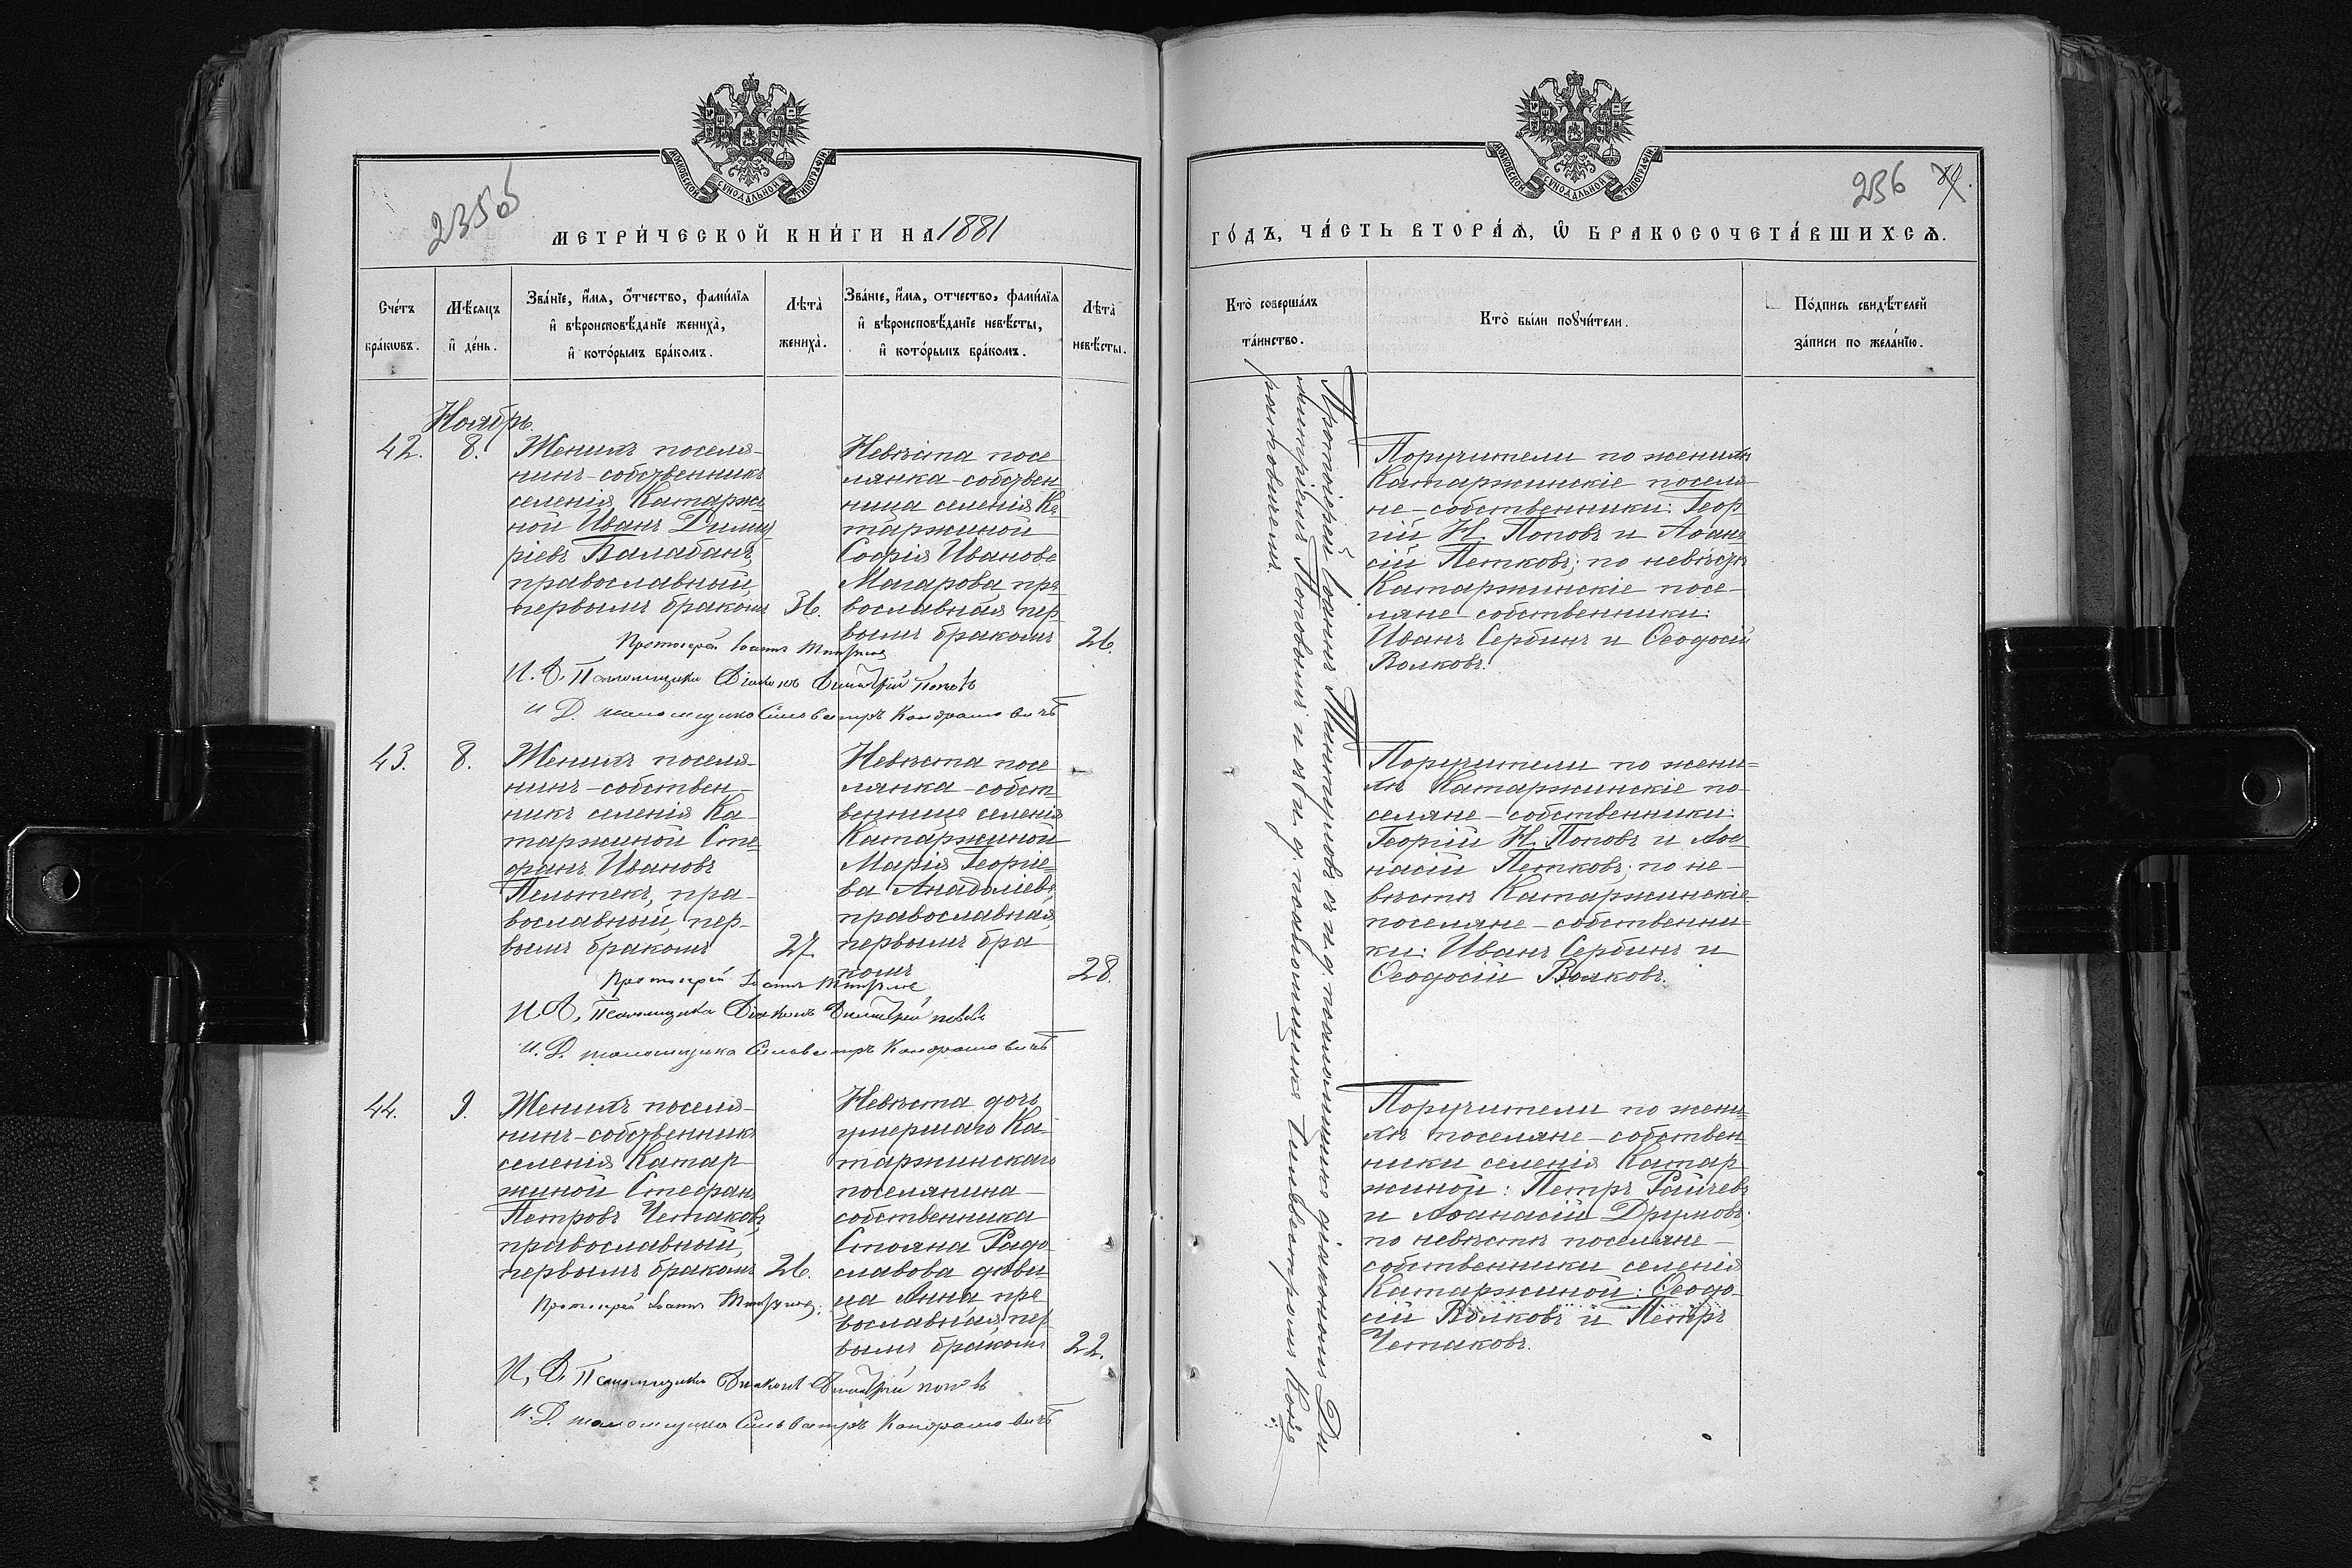 МОСКОВСКОЙ СѴНОДАЛЬНОЙ ТИПОГРАФІИ
235об
МЕТРИ́ЧЕСКОЙ КНИ́ГИ НА 1881
Сче́тъ бра́кѡвъ.
Мѣ́сяцъ и҆ де́нь.
Зва́нїе, и҆́мя, ѻ҆́тчество, фами́лїя
и҆ вѣроисповѣ́данїе жениха̀,
и҆ кото́рымъ бра́комъ.
Лѣта̀ жениха̀.
Зва́нїе, и҆́мя, отчество, фами́лїя
и҆ вѣроисповѣ́данїе невѣ́сты,
и҆ кото́рымъ бра́комъ.
Лѣта̀ невѣ́сты.
Ноябрь.
42.
8.
Женихъ поселя-
нинъ-собственникъ
селенія Катаржи
ной Иванъ Димит
ріевъ Балабанъ,
православный,
первымъ бракомъ
36.
Невѣста посе
лянка-собствен-
ница селенія Ка
таржиной
Софія Иванова
Магарова, пра
вославная, пер
вымъ бракомъ
26.
Протоіерей Іоаннъ
И. Д. Псаломщика Діаконъ Димитрій Поповъ
И. Д. псаломщика Сильвестръ Кондрашовичъ
43.
8.
Женихъ поселя-
нинъ-собствен-
никъ селенія Ка-
таржиной Сте
фанъ Ивановъ
Пельтекъ, пра-
вославный, пер-
вымъ бракомъ
27.
Невѣста посе
лянка-собст
венница селенія
Катаржиной
Марія Георгіе=
ва Анадоліева,
православная,
первымъ бра
комъ
28.
Протоіерей Іоаннъ
И. Д. Псаломщика Діаконъ Димитрій Поповъ
И. Д. псаломщика Сильвестръ Кондрашовичъ
44.
9.
Женихъ поселя-
нинъ-собственникъ
селенія Катар-
жиной Стефанъ
Петровъ Четаковъ,
православный,
первымъ бракомъ
26.
Невѣста дочь
умершаго Ка-
таржинскаго
поселянина-
собственника
Стояна Радо
славова дѣви
ца Анна, пра
вославная, пер
вымъ бракомъ
22.
Протоіерей Іоаннъ
И. Д. Псаломщика Діаконъ Димитрій Поповъ
И. Д. псаломщика Сильвестръ Кондрашовичъ
МОСКОВСКОЙ СѴНОДАЛЬНОЙ ТИПОГРАФІИ
236
ГО́ДЪ, ЧА́СТЬ ВТОРА́Ѧ, Ѽ БРАКОСОЧЕТА́ВШИХСѦ.
Кто̀ соверша́лъ та́инство.
Кто̀ бы́ли поꙋчи́тели.
По́дпись свидѣ́телей за́писи по жела́нїю.
Протоіерей Іоаннъ съ и. д. псаломщика діакономъ Ди-
митріемъ Поповымъ и съ и. д. псаломщика Сильвестромъ Конд
рашовичемъ.
Поручители по женихѣ
Катаржинскіе поселя-
не-собственники: Геор
гій Н. Поповъ и Аѳана
сій Петковъ; по невѣстѣ
Катаржинскіе посе-
ляне-собственники:
Иванъ Сербинъ и Ѳеодосій
Волковъ.
Поручители по жени=
хѣ Катаржинскіе по-
селяне-собственники:
Георгій Н. Поповъ и Аѳа
насій Петковъ; по не-
вѣстѣ Катаржинскіе
поселяне-собственни=
ки: Иванъ Сербинъ и
Ѳеодосій Волковъ.
Поручители по жени=
хѣ поселяне-собствен
ники селенія Катар
жиной: Петръ Райчевъ
и Аѳанасій Друмовъ;
по невѣстѣ поселяне-
собственники селенія
Катаржиной: Ѳеодо-
сій Волковъ и Петръ
Четаковъ.